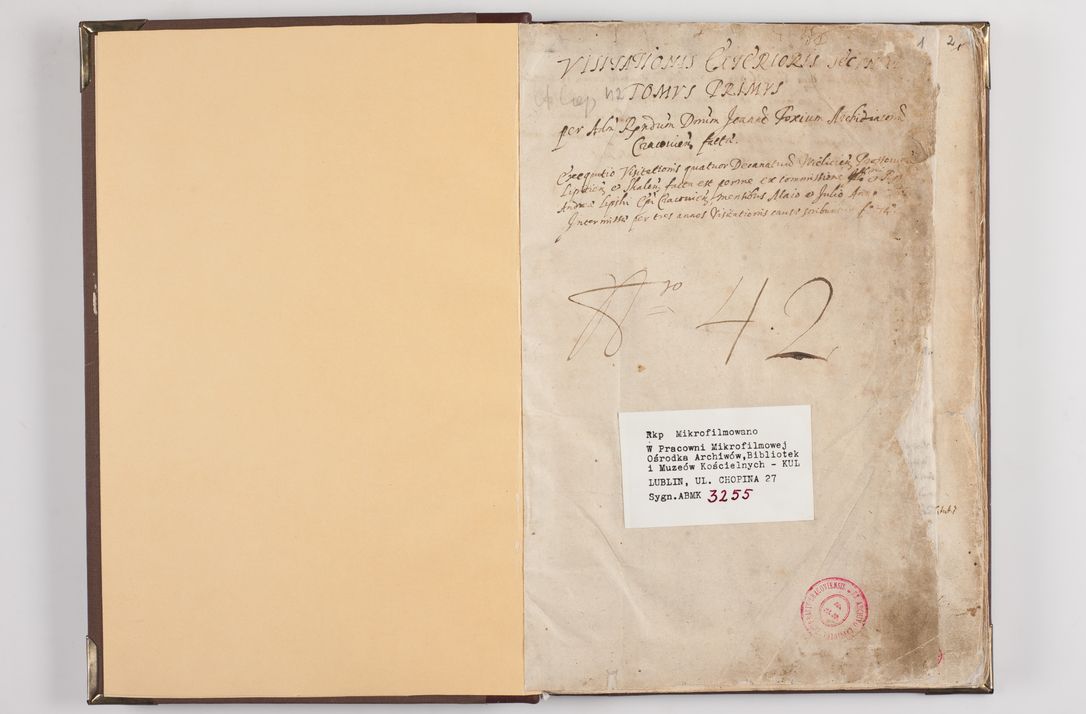 1 2
VISITATIONIS EXTERIORIS
TOMVS PRIMVS
per Adm Rpndum Dnum Joanne Foxium Archidiaconu
Cracovien facta.
Exequutio Visitationis quatuor Decanatuu Mielicien
Lipnicien et Skalen facta est porme ex commissione
Andreæ Lipski Epi Cracovien, mensibus Maio et Julio
Intermissæ per tres annos Visitationis causæ
Nro 42
Rkp Mikrofilmowano
W Pracowni Mikrofilmowej
Ośrodka Archiwów,Bibliotek
i Muzeów Kościelnych - KUL
LUBLIN, UL. CHOPINA 27
Sygn.ABMK 3255